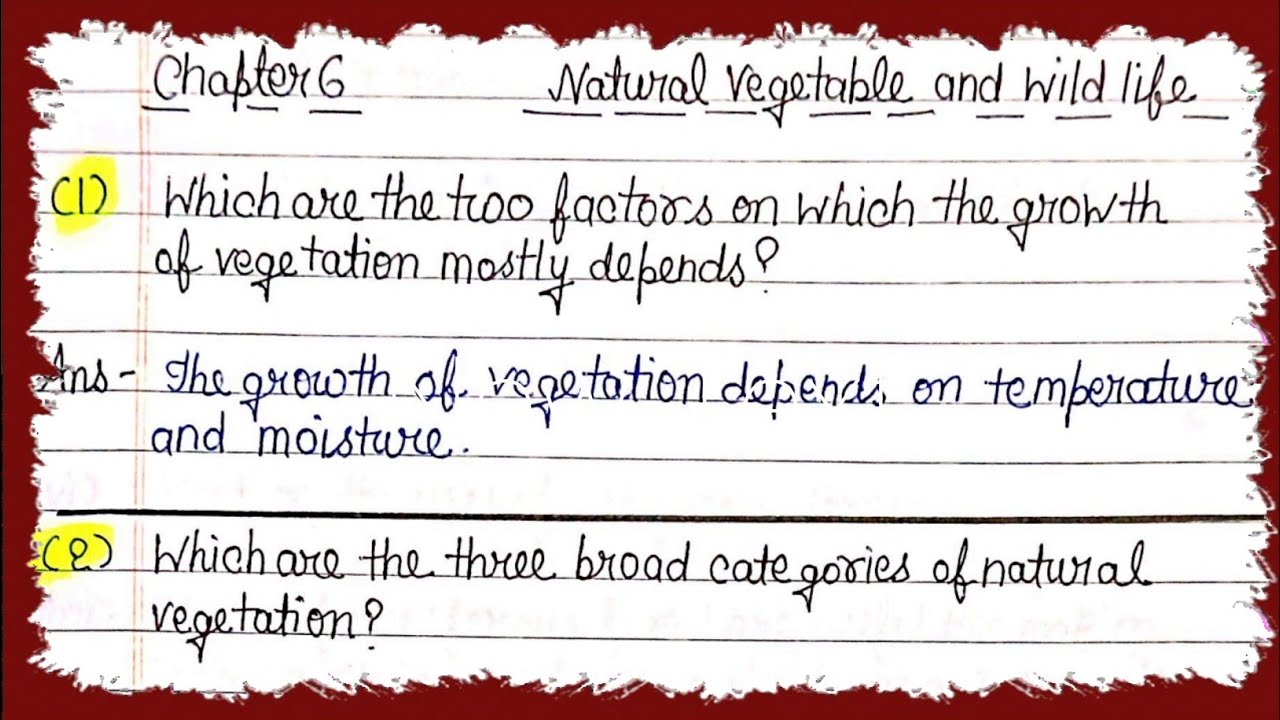 Chapter 6 Natural vegetable and wild life
(1) Which are the two factors on which the growth
of vegetation mostly depends?
Ans - The growth of vegetation depends on temperature
and moisture.
(2) Which are the three broad categories of natural
vegetation?